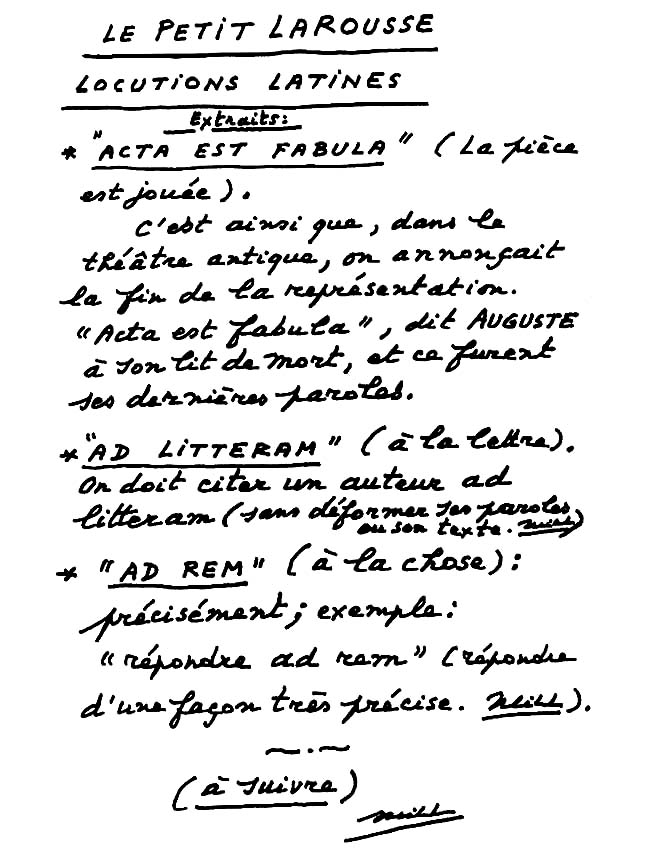 LE PETIT LAROUSSE
LOCUTIONS LATINES
Extraits:
* "ACTA EST FABULA" (La pièce
est jouée).
C'est ainsi que, dans le
théâtre antique, on annonçait
la fin de la représentation.
"Acta est fabula", dit AUGUSTE
à son lit de mort, et ce furent
ses dernières paroles.
* "AD LITTERAM" (à la lettre).
On doit citer un auteur ad
litteram (sans déformer ses paroles
ou son texte. )
* "AD REM" (à la chose):
précisément; exemple:
"répondre ad rem" (répondre
d'une façon très précise. ).
(à suivre)